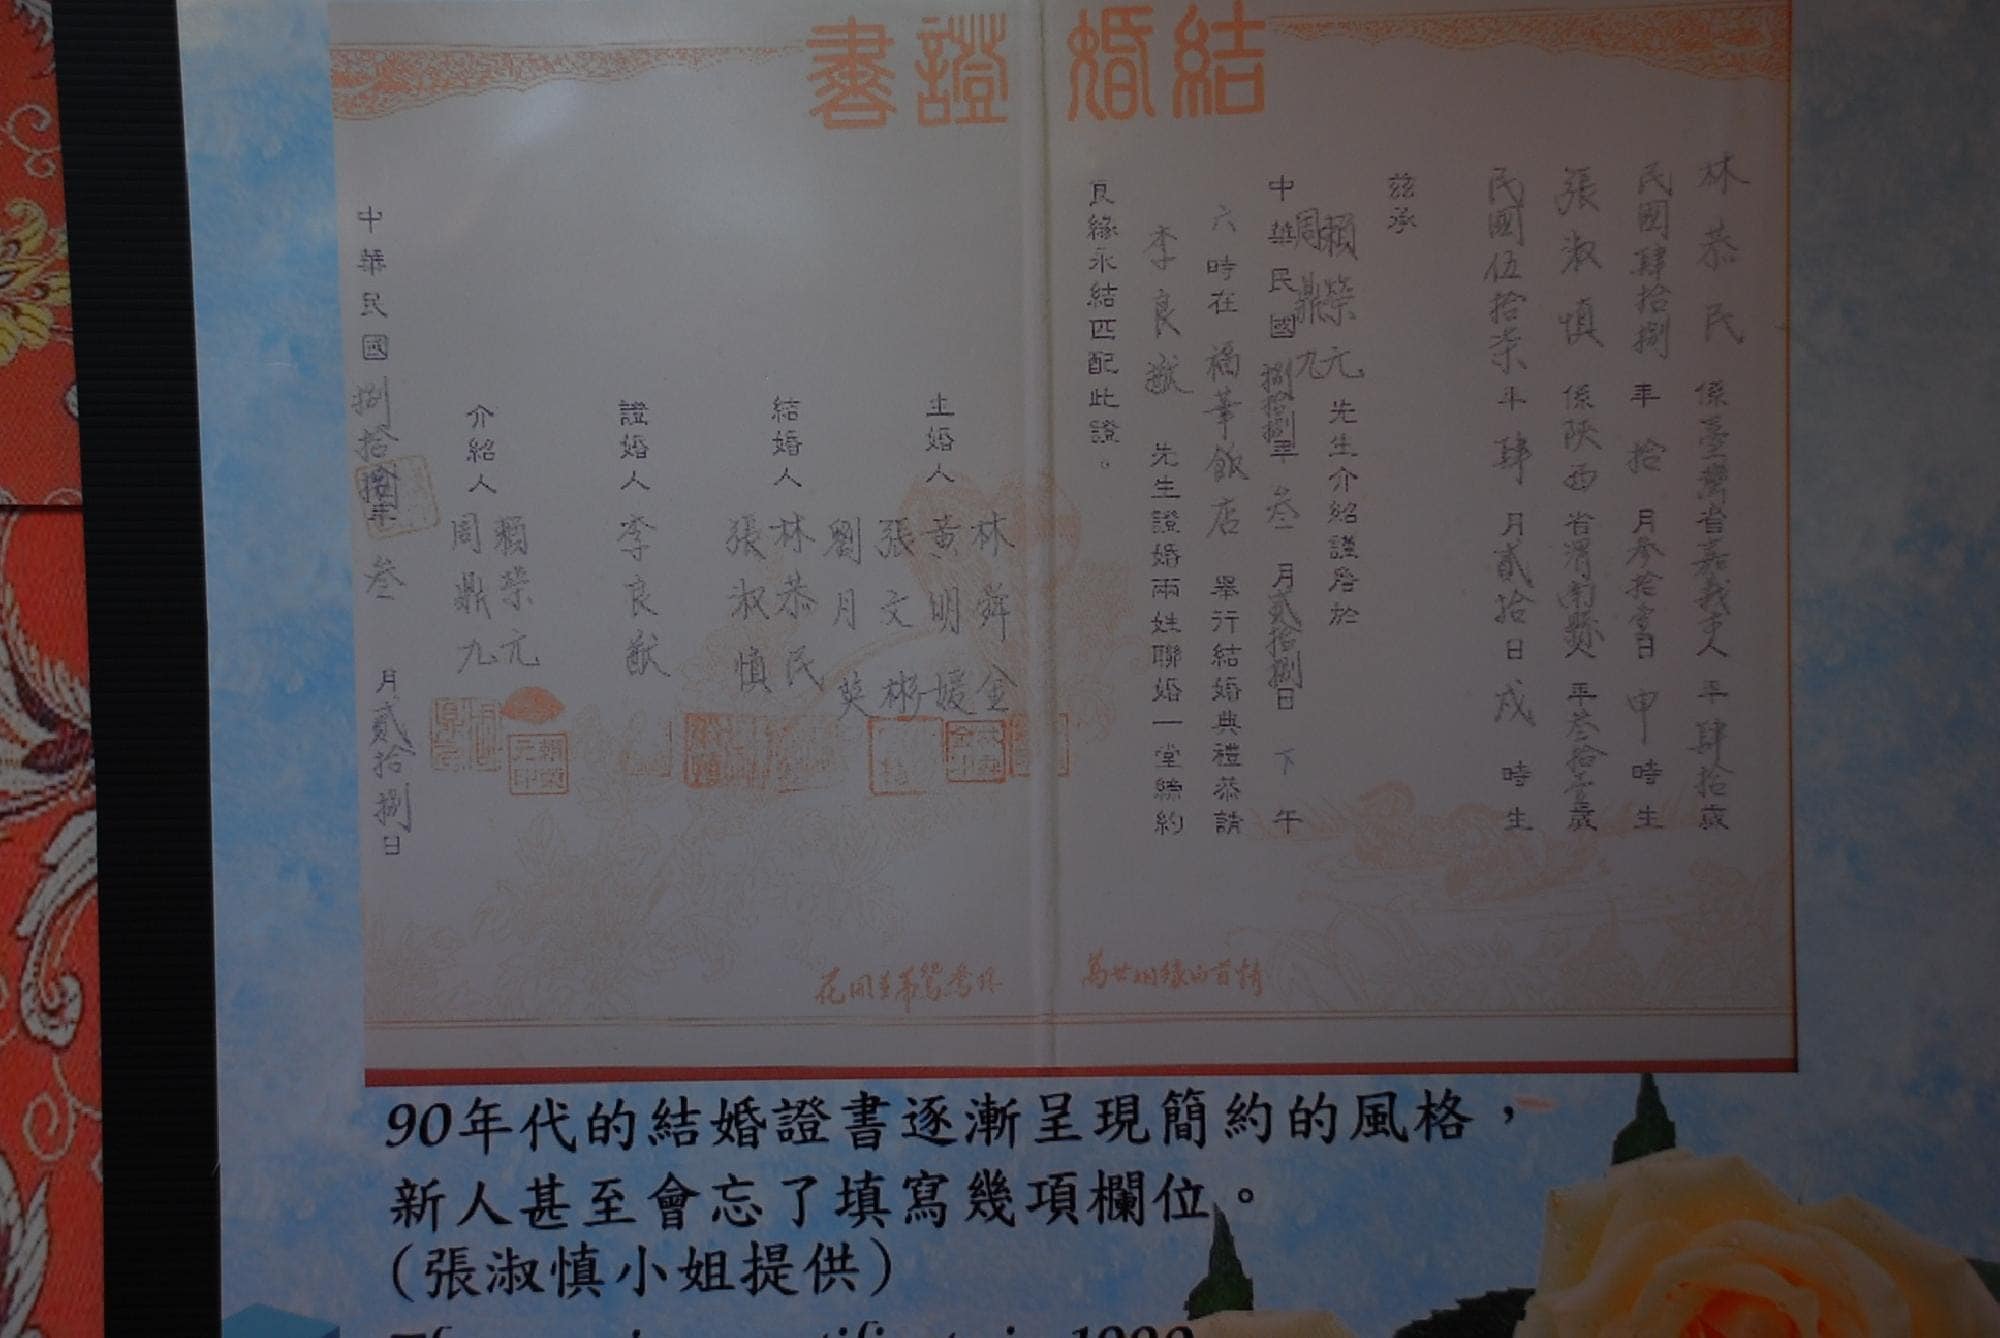 結婚證書
林恭民 係臺灣省嘉義市人 年肆拾歲
民國肆拾捌年拾月參拾壹日甲時生
張淑慎 係陝西省渭南縣人 年叁拾壹歲
民國伍拾柒年肆月貳拾日戌時生
茲承
賴榮元
周鼎九 先生介紹謹詹於
中華民國捌拾捌年叁月貳拾捌日下午
六時在福華飯店舉行結婚典禮恭請
李良猷 先生證婚兩姓聯婚一堂締約
良緣永結匹配此證。
主婚人 林舜金
黃明媛
張文彬
劉月英
結婚人 林恭民
張淑慎
證婚人 李良猷
介紹人 賴榮元
周鼎九
中華民國捌拾捌年叁月貳拾捌日
90年代的結婚證書逐漸呈現簡約的風格，
新人甚至會忘了填寫幾項欄位。
（張淑慎小姐提供）